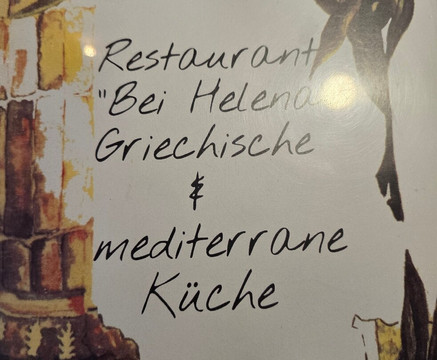 Restaurant
"Bei Helena
Griechische
&
mediterrane
Küche